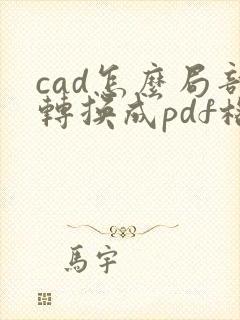 cad怎麼局部
轉換成pdf格
馬宇